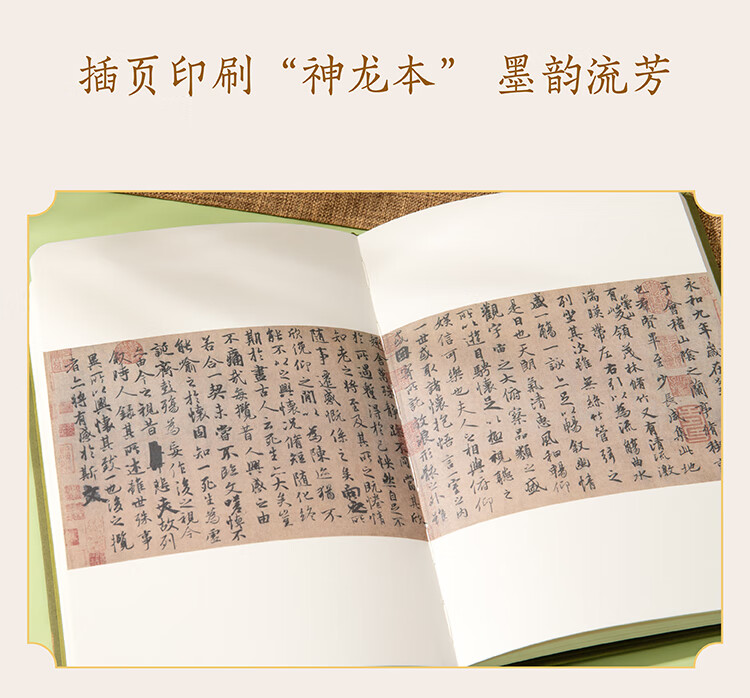 插页印刷“神龙本” 墨韵流芳
永和九年歲在
于會稽山陰之蘭亭脩稧事
也羣賢畢至少長咸集此地
有崇山峻領茂林脩竹又有清流激
湍暎帶左右引以為流觴曲水
列坐其次雖無絲竹管弦之
盛一觴一詠亦足以暢敘幽情
是日也天朗氣清惠風和暢仰
觀宇宙之大俯察品類之盛
所以遊目騁懷足以極視聽之
娛信可樂也夫人之相與俯仰
一世或取諸懷抱悟言一室之內
或因寄所託放浪形骸之外雖
於所遇蹔得於己怏然自足不
知老之將至及其所之既惓情
隨事遷感慨係之矣向之所
欣俛仰之閒以為陳迹猶不
能不以之興懷況脩短隨化終
期於盡古人云死生亦大矣豈
不痛哉每攬昔人興感之由
若合一契未嘗不臨文嗟悼不
能喻之於懷固知一死生為虛
誕齊彭殤為妄作後之視今
亦由今之視昔悲夫故列
敘時人錄其所述雖世殊事
異所以興懷其致一也後之攬
者亦將有感於斯文